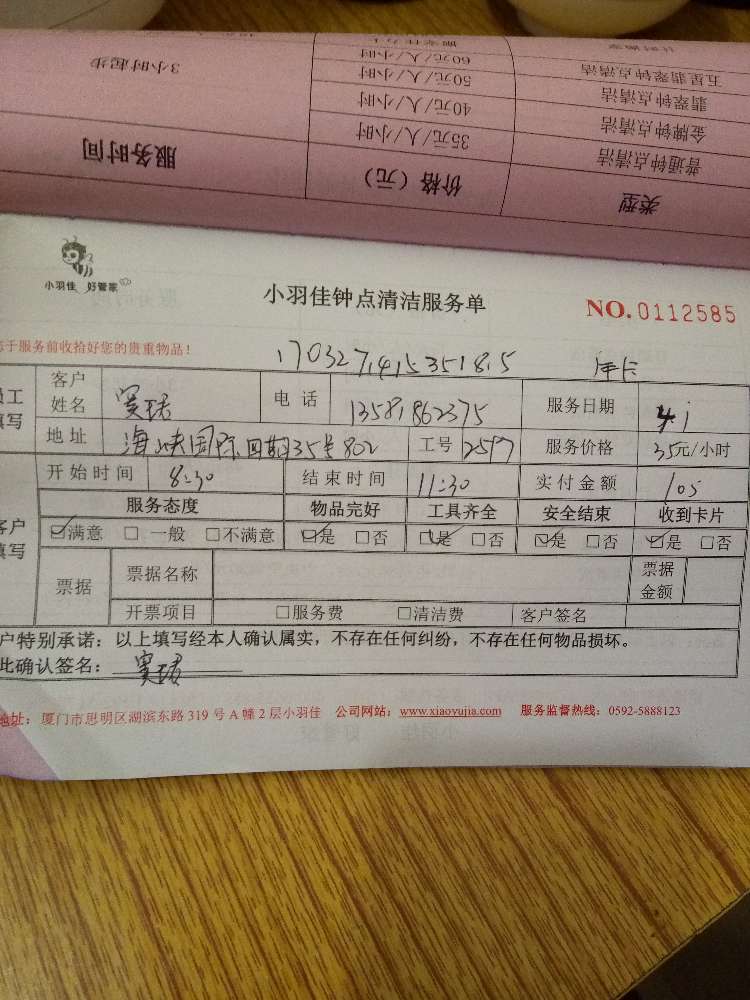 类型 价格（元） 服务时间
普通钟点清洁 35元/人/小时 3小时起步
金牌钟点清洁 40元/人/小时
翡翠钟点清洁 50元/人/小时
五星翡翠钟点清洁 60元/人/小时
小羽佳 好管家
小羽佳钟点清洁服务单
NO.0112585
于服务前收拾好您的贵重物品！
170327141535181815 年卡
员工填写 客户姓名 电话 13581862375 服务日期 4.1
地址 海峡国际四期35号802 工号 2597 服务价格 35元/小时
客户填写 开始时间 8:30 结束时间 11:30 实付金额 105
服务态度 物品完好 工具齐全 安全结束 收到卡片
☑满意 □一般 □不满意 ☑是 □否 ☑是 □否 ☑是 □否 ☑是 □否
票据 票据名称 票据金额
开票项目 □服务费 □清洁费 客户签名
户特别承诺：以上填写经本人确认属实，不存在任何纠纷，不存在任何物品损坏。
此确认签名：
地址：厦门市思明区湖滨东路319号A幢2层小羽佳 公司网站：www.xiaoyujia.com 服务监督热线：0592-5888123